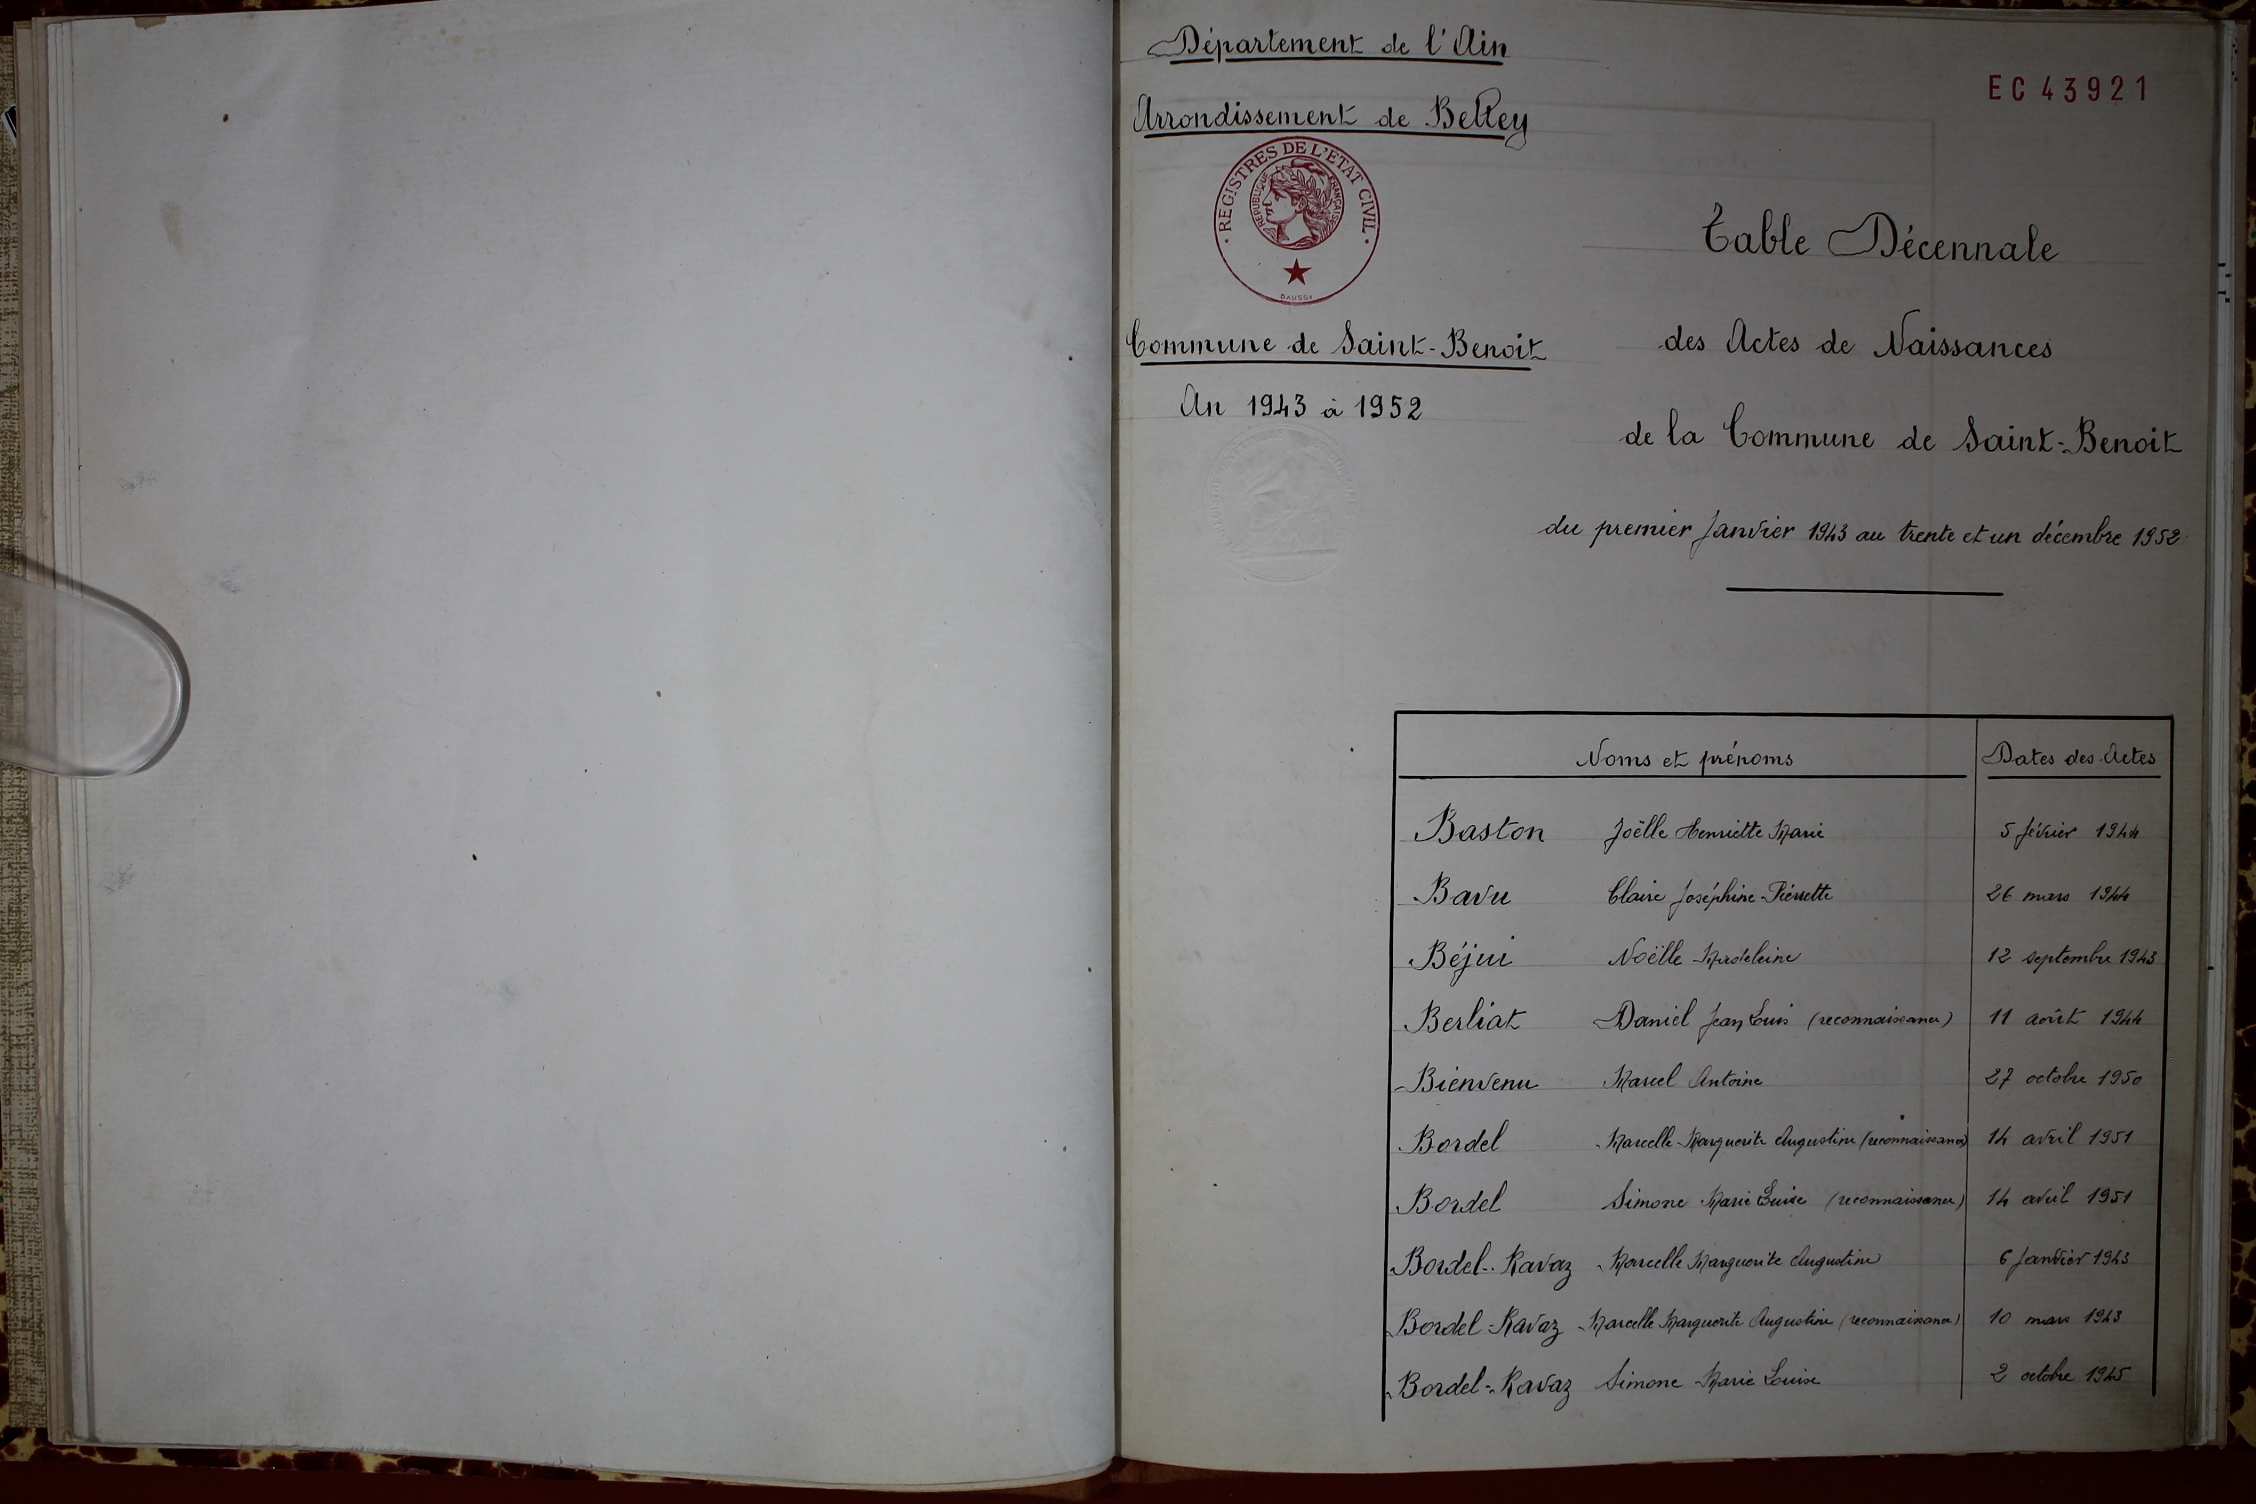 Département de l'Ain
EC 43921
Arrondissement de Belley
· REGISTRES DE L'ETAT CIVIL ·
REPUBLIQUE FRANÇAISE
Table Décennale
Commune de Saint-Benoit
des Actes de Naissances
An 1943 à 1952
de la Commune de Saint-Benoit
du premier Janvier 1943 au trente et un décembre 1952
Noms et prénoms Dates des Actes
Baston Joëlle Henriette Marie 5 février 1944
Bavu Claire Joséphine Pierrette 26 mars 1944
Béjui Noëlle Madeleine 12 septembre 1943
Berliat Daniel Jean Louis (reconnaissance) 11 août 1944
Bienvenu Marcel Antoine 27 octobre 1950
Bordel Marcelle Marguerite Augustine (reconnaissance) 14 avril 1951
Bordel Simone Marie Louise (reconnaissance) 14 avril 1951
Bordel-Ravaz Marcelle Marguerite Augustine 6 Janvier 1943
Bordel-Ravaz Marcelle Marguerite Augustine (reconnaissance) 10 mars 1943
Bordel-Ravaz Simone Marie Louise 2 octobre 1945